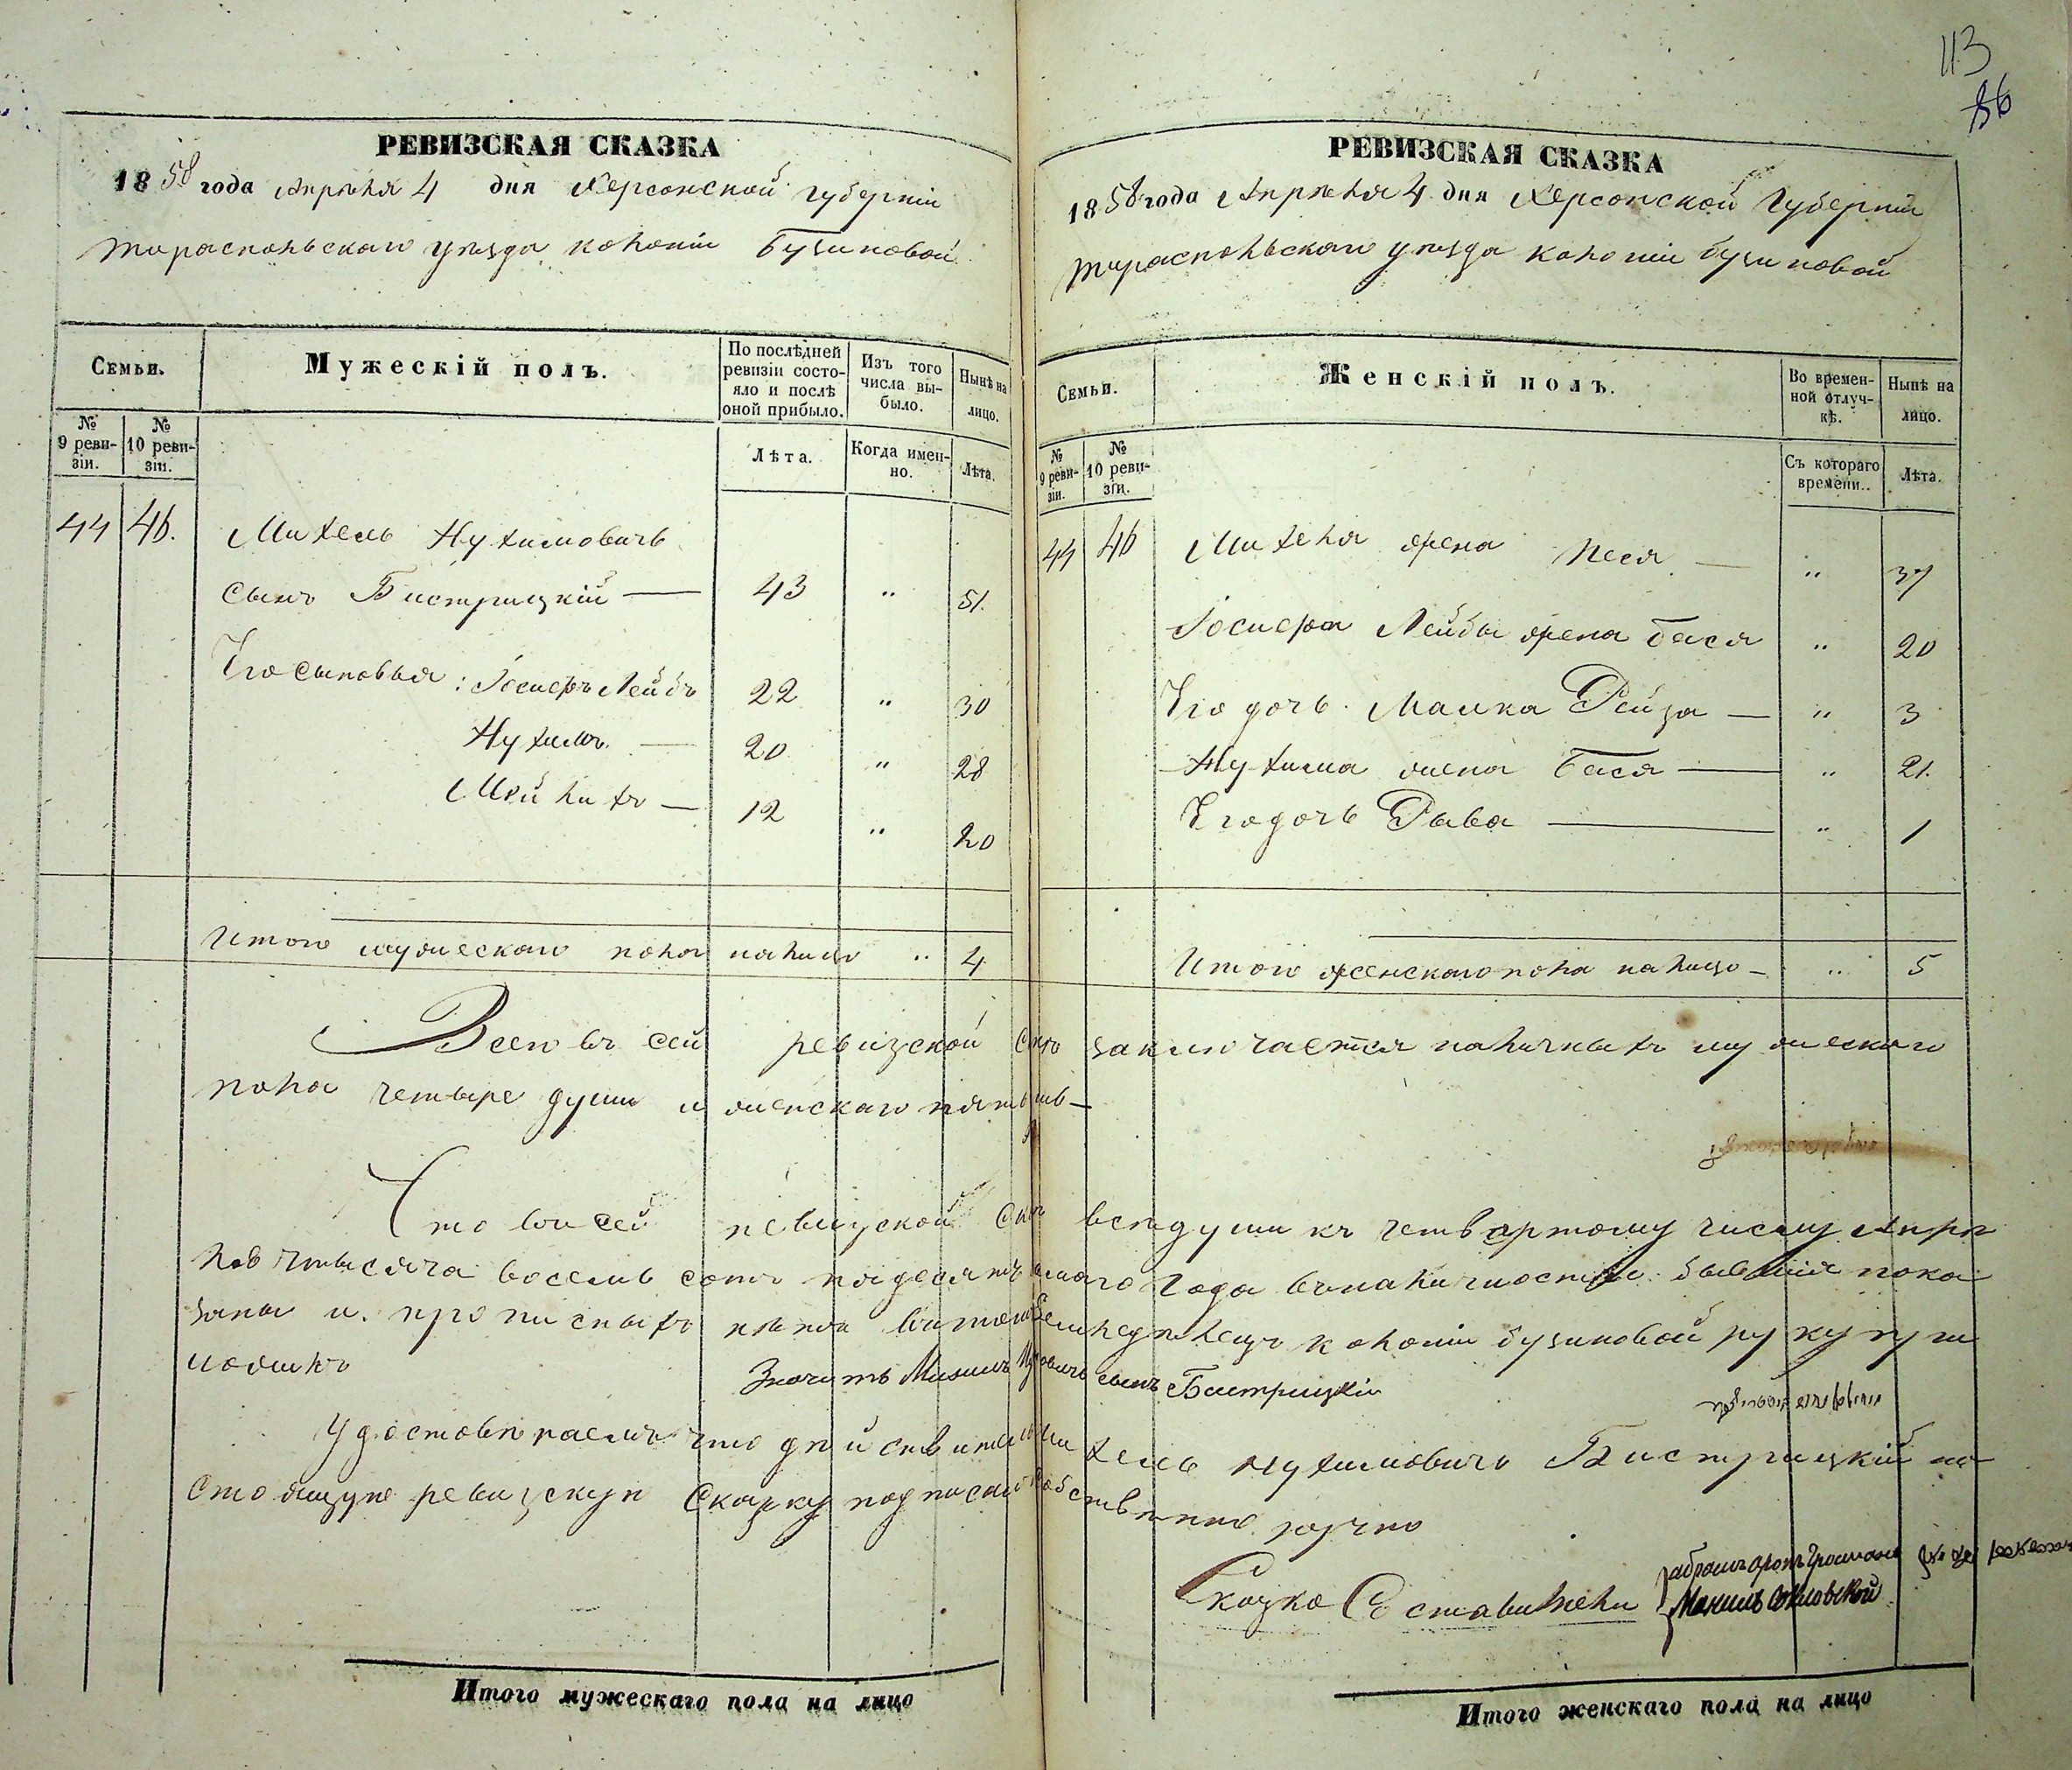 113
86
РЕВИЗСКАЯ СКАЗКА
1858 года Апрѣля 4 дня Херсонской губерніи
Тираспольскаго уѣзда колоніи Бузиновой
Семьи.
Мужескій полъ.
По послѣдней ревизіи состояло и послѣ оной прибыло.
Изъ того числа выбыло.
Нынѣ на лицо.
№ 9 ревизіи.
№ 10 ревизіи.
Лѣта.
Когда именно.
Лѣта.
44 46. Михель Нухимовичъ
сынъ Бистрицкій — 43 " 51.
Его сыновья: Іосифъ Лейбъ 22 " 30
Нухимъ — 20 " 28
Мейлихъ — 12 " 20
Итого мужескаго пола налицо " 4
РЕВИЗСКАЯ СКАЗКА
1858 года Апрѣля 4 дня Херсонской Губерніи
Тираспольскаго уѣзда колоніи Бузиновой
Семьи.
Женскій полъ.
Во временной отлучкѣ.
Нынѣ на лицо.
№ 9 ревизіи.
№ 10 ревизіи.
Съ котораго времени.
Лѣта.
44 46 Михеля жена Песя — " 37
Іосифа Лейбы жена Бася " 20
Его дочь Малка Рейза — " 3
Нухима жена Бася — " 21.
Его дочь Рыва — " 1
Итого женскаго пола налицо — " 5
Всего въ сей ревизской заключается наличныхъ мужескаго
пола четыре души и женскаго пять
Что въ сей ревизской всѣ души къ четвартому числу Апрѣ
тысяча восемь сотъ года въ наличности бывшія пока
заны и прописныхъ колоніи Бузиновой руку при
ложилъ
Значитъ сынъ Бистрицкій
Удостовѣряемъ что Нухимовичъ Бистрицкій на
стоящую ревизскую Сказку подписалъ
Сказко Составители
Абрамъ
Итого мужескаго пола на лицо
Итого женскаго пола на лицо